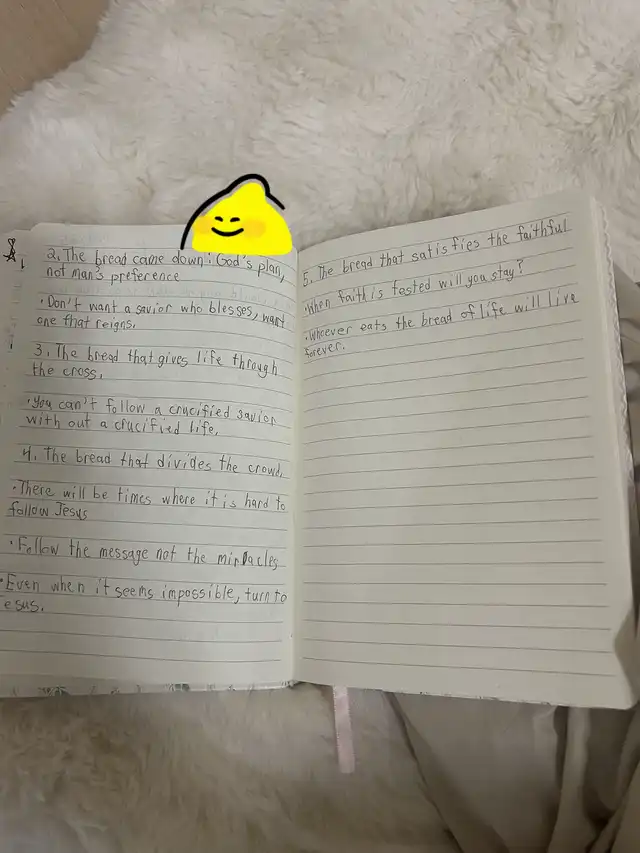 2. The bread came down: God's plan,
not man's preference
•Don't want a savior who blesses, want
one that reigns.
3. The bread that gives life through
the cross.
•You can't follow a crucified savior
with out a crucified life.
4. The bread that divides the crowd.
•There will be times where it is hard to
follow Jesus
•Follow the message not the miracles
•Even when it seems impossible, turn to
esus.
5. The bread that satisfies the faithful
•When faith is tested will you stay?
•Whoever eats the bread of life will live
forever.